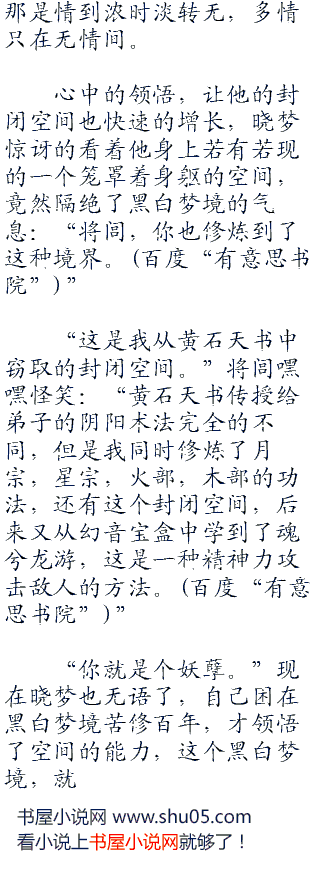 那是情到浓时淡转无，多情
只在无情间。
心中的领悟，让他的封
闭空间也快速的增长，晓梦
惊讶的看着他身上若有若现
的一个笼罩着身躯的空间，
竟然隔绝了黑白梦境的气
息：“将闾，你也修炼到了
这种境界。(百度“有意思书
院”)”
“这是我从黄石天书中
窃取的封闭空间。”将闾嘿
嘿怪笑：“黄石天书传授给
弟子的阴阳术法完全的不
同，但是我同时修炼了月
宗，星宗，火部，木部的功
法，还有这个封闭空间，后
来又从幻音宝盒中学到了魂
兮龙游，这是一种精神力攻
击敌人的方法。(百度“有意
思书院”)”
“你就是个妖孽。”现
在晓梦也无语了，自己困在
黑白梦境苦修百年，才领悟
了空间的能力，这个黑白梦
境，就
书屋小说网 www.shu05.com
看小说上书屋小说网就够了！